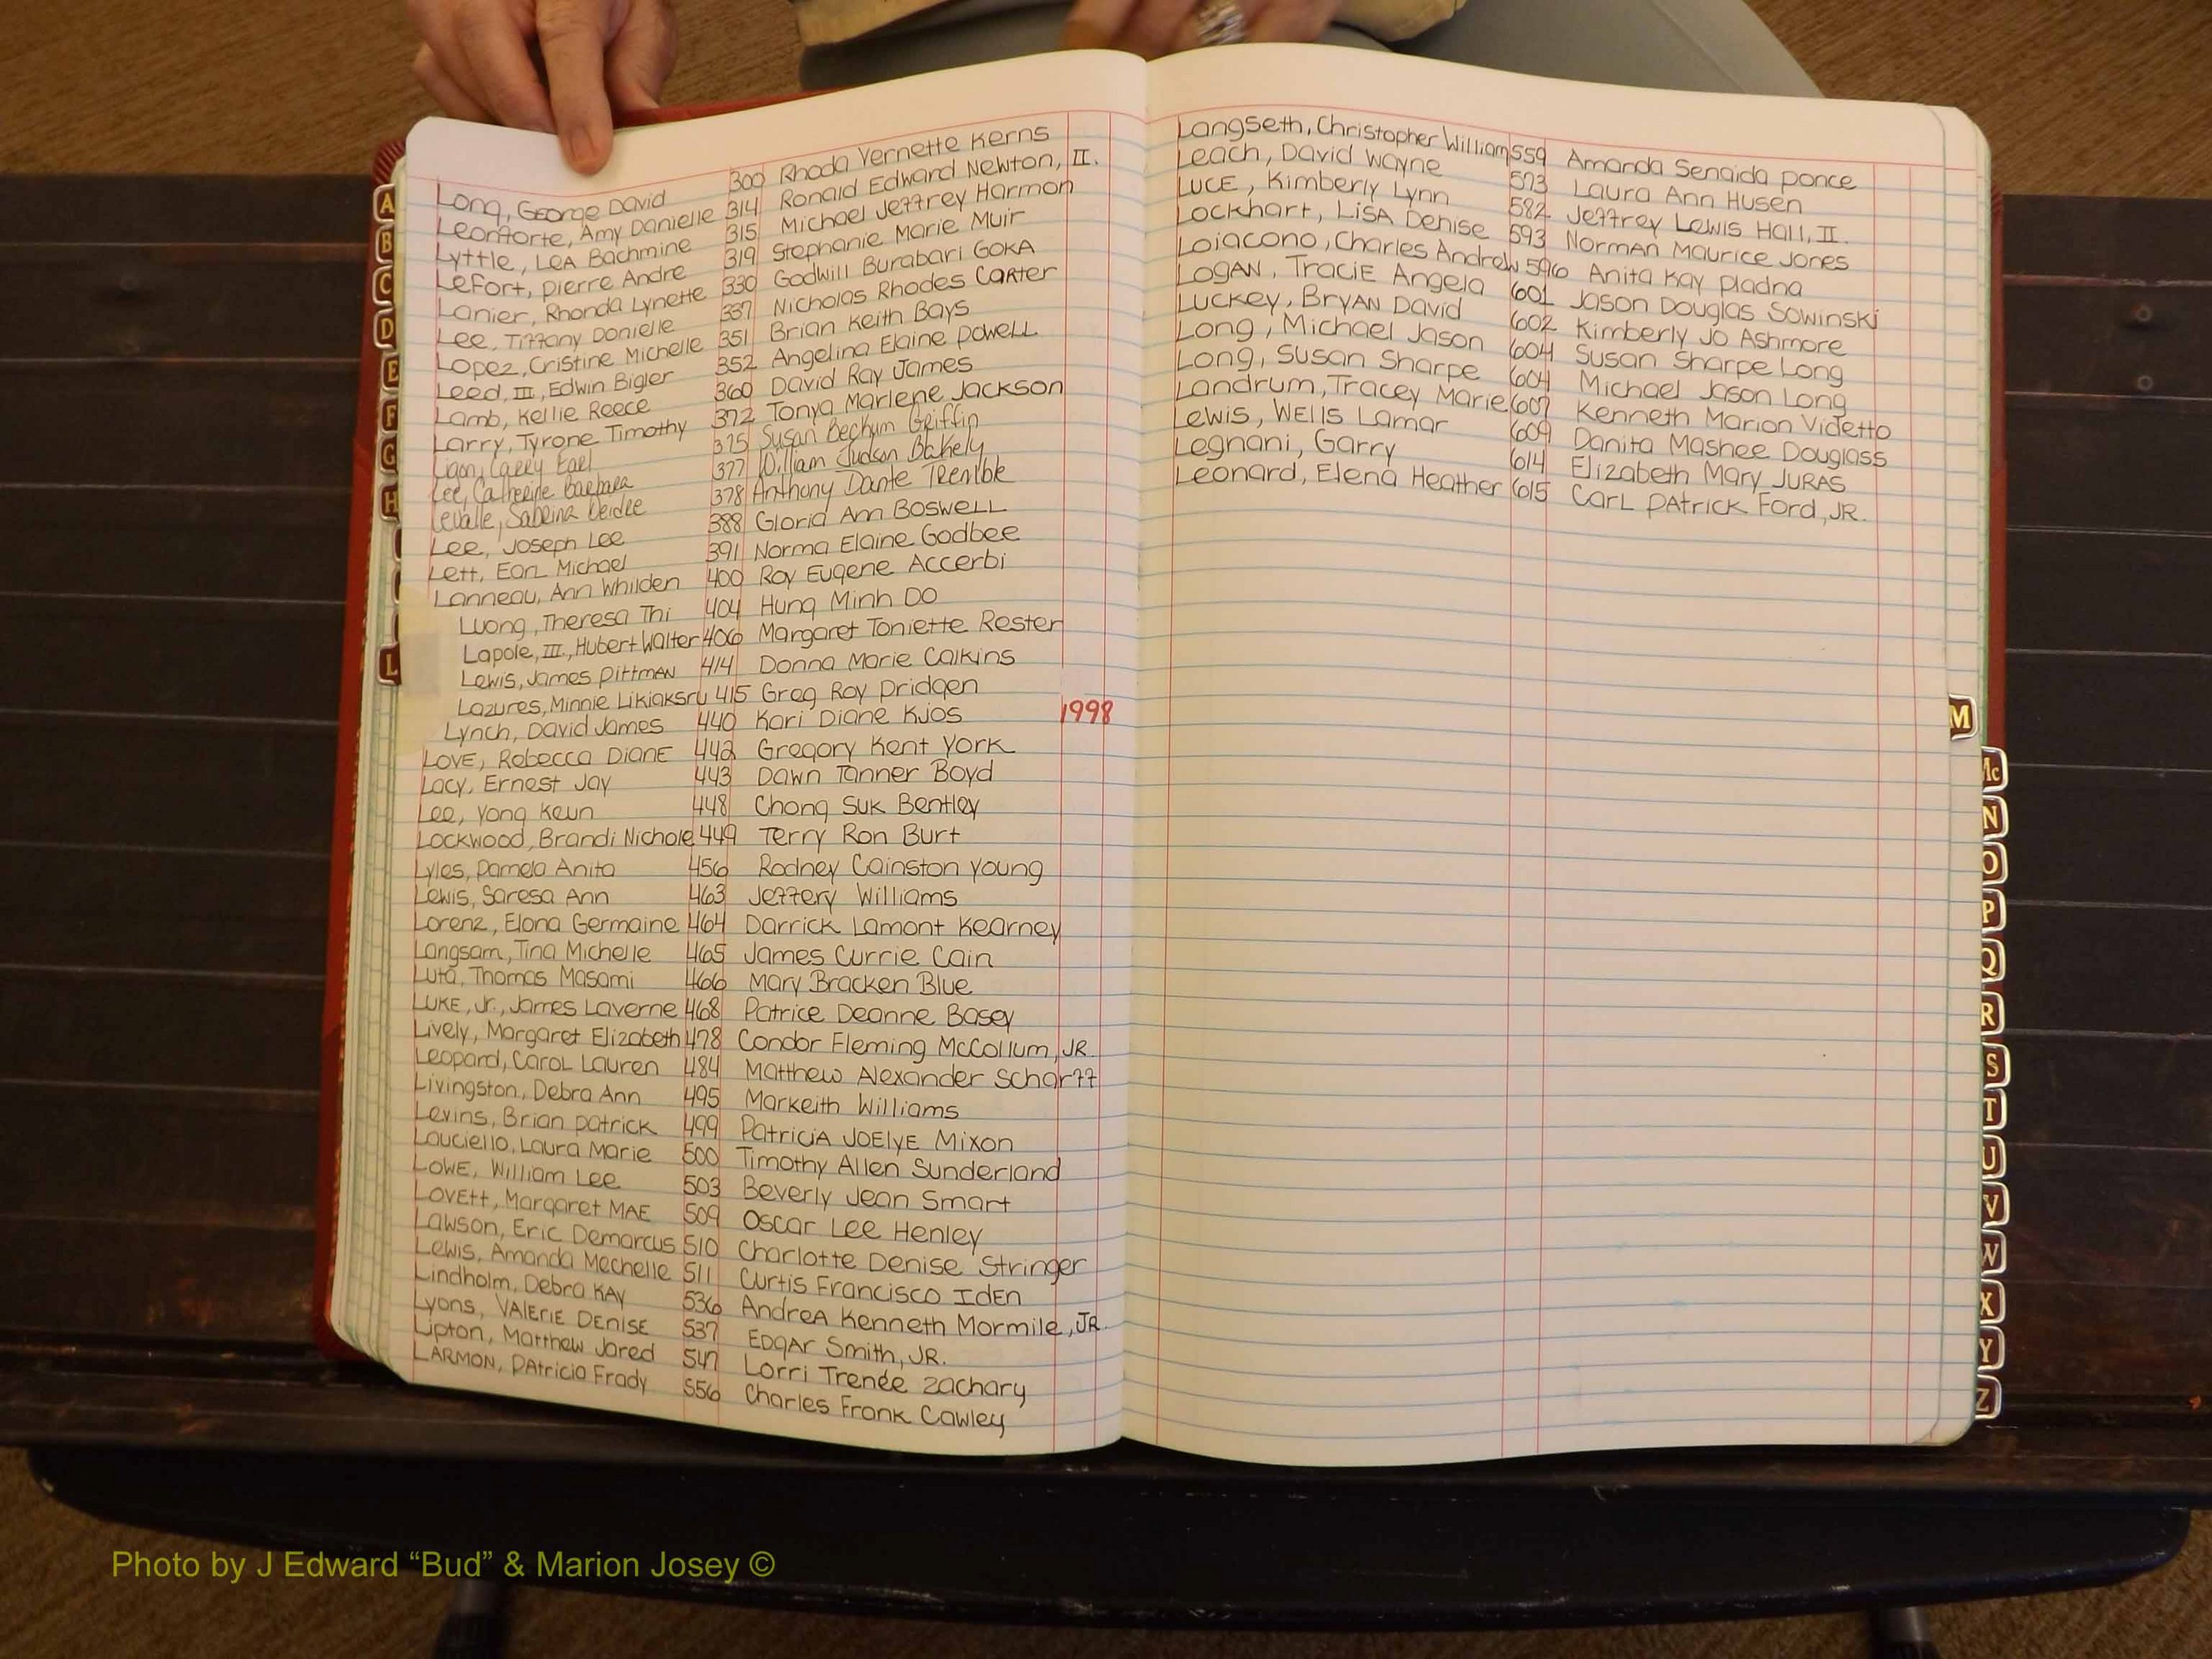 Long, George David 300 Rhoda Vernette Kerns
Leonforte, Amy Danielle 314 Ronald Edward Newton, II.
Lyttle, Lea Bachmine 315 Michael Jeffrey Harmon
LeFort, Pierre Andre 319 Stephanie Marie Muir
Lanier, Rhonda Lynette 330 Godwill Burabari Goka
Lee, Tiffany Donielle 337 Nicholas Rhodes Carter
Lopez, Cristine Michelle 351 Brian Keith Bays
Leed, III, Edwin Bigler 352 Angelina Elaine Powell
Lamb, Kellie Reece 360 David Ray James
Larry, Tyrone Timothy 372 Tonya Marlene Jackson
Ligon, Carey Earl 375 Susan Beckum Griffin
Lee, Catherine Barbara 377 William Judson Blakely
Levalle, Sabrina Deidre 378 Anthony Dante
Lee, Joseph Lee 388 Gloria Ann Boswell
Lett, Earl Michael 391 Norma Elaine Godbee
Lanneau, Ann Whilden 400 Roy Eugene Accerbi
Luong, Theresa Thi 404 Hung Minh Do
Lapole, III., Hubert Walter 406 Margaret Toniette Rester
Lewis, James Pittman 414 Donna Marie Calkins
Lazures, Minnie Likiaksru 415 Greg Roy Pridgen
Lynch, David James 440 Kari Diane Kjos 1998
Love, Rebecca Diane 442 Gregory Kent York
Lacy, Ernest Jay 443 Dawn Tanner Boyd
Lee, Yong Keun 448 Chong Suk Bentley
Lockwood, Brandi Nichole 449 Terry Ron Burt
Lyles, Pamela Anita 456 Rodney Cainston Young
Lewis, Saresa Ann 463 Jeffery Williams
Lorenz, Elona Germaine 464 Darrick Lamont Kearney
Langsam, Tina Michelle 465 James Currie Cain
Luta, Thomas Masami 466 Mary Bracken Blue
Luke, Jr., James Laverne 468 Patrice Deanne Basey
Lively, Margaret Elizabeth 478 Condor Fleming McCollum, JR.
Leopard, Carol Lauren 484 Matthew Alexander Scharff
Livingston, Debra Ann 495 Markeith Williams
Levins, Brian Patrick 499 Patricia Joelye Mixon
Lauciello, Laura Marie 500 Timothy Allen Sunderland
Lowe, William Lee 503 Beverly Jean Smart
Lovett, Margaret Mae 509 Oscar Lee Henley
Lawson, Eric Demarcus 510 Charlotte Denise Stringer
Lewis, Amanda Mechelle 511 Curtis Francisco Iden
Lindholm, Debra Kay 536 Andrea Kenneth Mormile, JR.
Lyons, Valerie Denise 537 Edgar Smith, JR.
Lipton, Matthew Jared 547 Lorri Trenée Zachary
Larmon, Patricia Frady 556 Charles Frank Cawley
Langseth, Christopher William 559 Amanda Senaida Ponce
Leach, David Wayne 573 Laura Ann Husen
Luce, Kimberly Lynn 582 Jeffrey Lewis Hall, II.
Lockhart, Lisa Denise 593 Norman Maurice Jones
Loiacono, Charles Andrew 596 Anita Kay Pladna
Logan, Tracie Angela 601 Jason Douglas Sowinski
Luckey, Bryan David 602 Kimberly Jo Ashmore
Long, Michael Jason 604 Susan Sharpe Long
Long, Susan Sharpe 604 Michael Jason Long
Landrum, Tracey Marie 607 Kenneth Marion Videtto
Lewis, Wells Lamar 609 Danita Mashee Douglass
Legnani, Garry 614 Elizabeth Mary Juras
Leonard, Elena Heather 615 Carl Patrick Ford, JR.
A
B
C
D
E
F
G
H
L
M
Mc
N
O
P
Q
R
S
T
U
V
W
X
Y
Z
Photo by J Edward “Bud” & Marion Josey ©